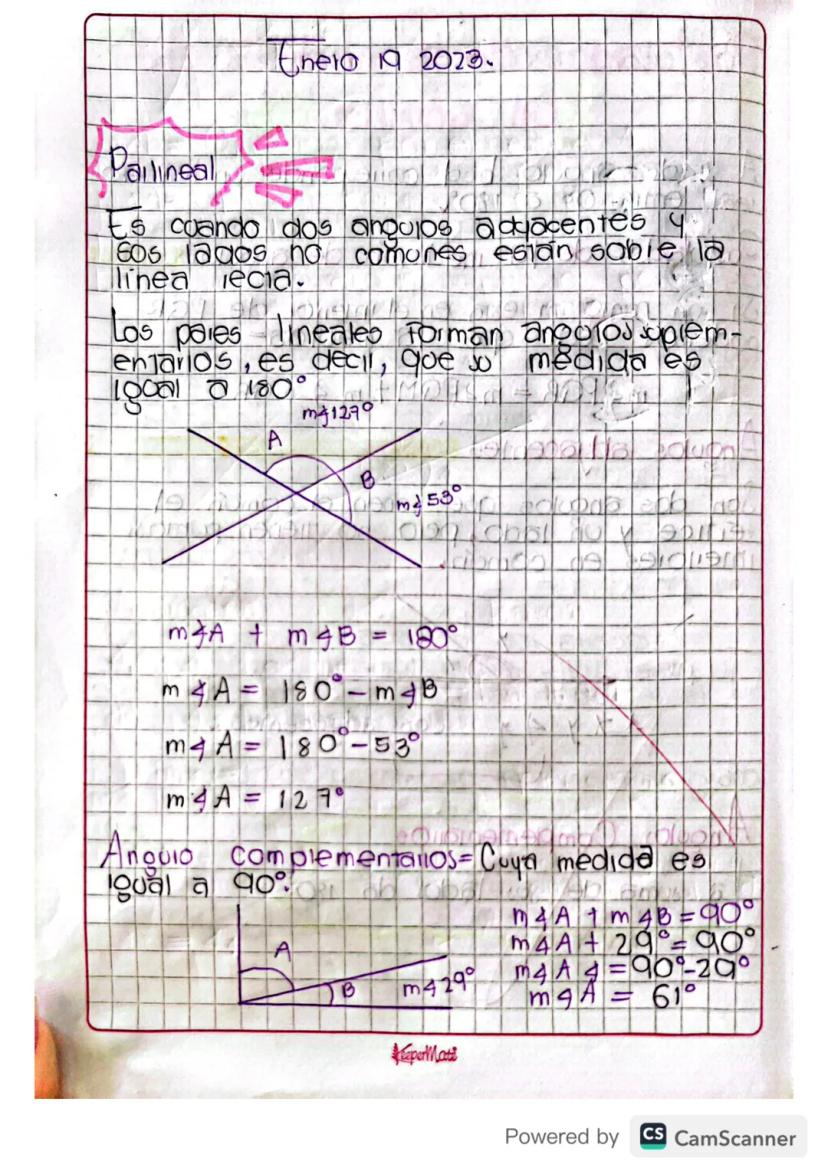 Enero 19 2023.
Par lineal
Es cuando dos angulos adyacentes y
sos lados no comunes están sobre la
línea recta.
Los pares lineales forman angulos suplem-
entarios, es decir, que su medida es
igual a 180°
m∡127°
A
B
m∡53°
m∡A + m∡B = 180°
m∡A = 180° - m∡B
m∡A = 180° - 53°
m∡A = 127°
Angulo complementarios = Cuya medida es
igual a 90°.
m∡A + m∡B = 90°
m∡A + 29° = 90°
m∡A ∡ = 90° - 29°
m∡A = 61°
A
B
m∡29°
Powered by CS CamScanner